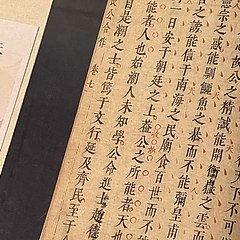 故公之精誠能開衡嶽之雲
宗之惑能馴鱷魚之暴而不能弭皇甫
之謗能信于南海之民廟食百世而不
一日安于朝廷之上蓋公之所能者天也
能者人也始潮人未知學公命進士趙德
自是潮之士皆篤于文行延及齊民至于
卷七